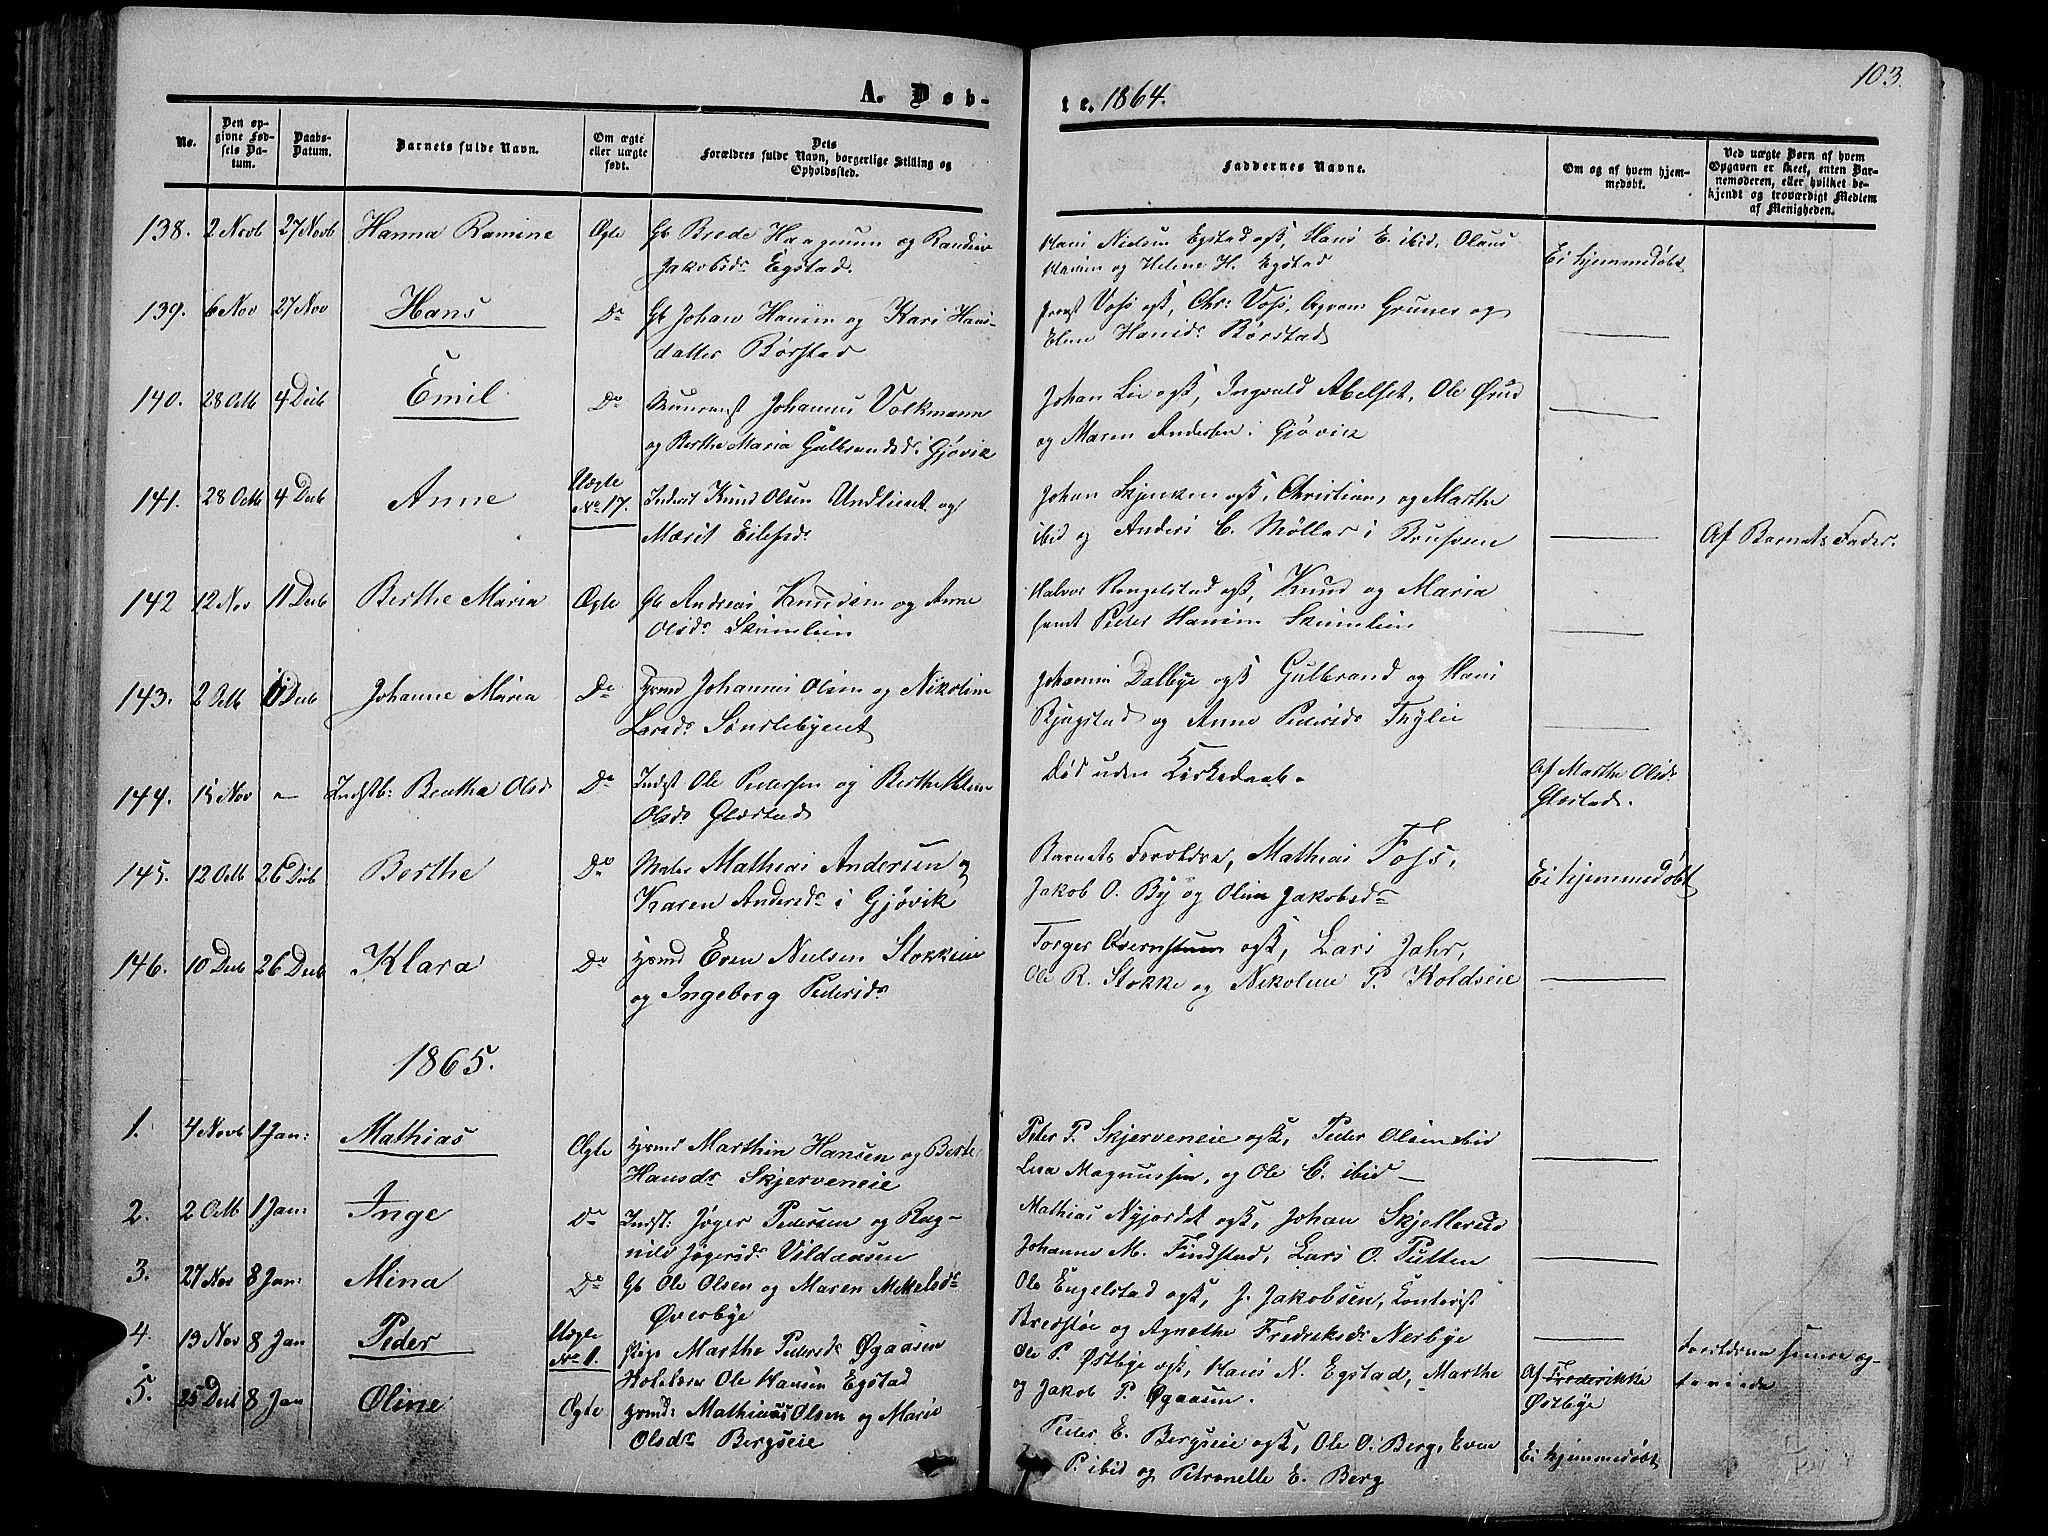 103.
A. Døb-
te. 1864.
No.
Den op-
givne Fød-
sels Da-
tum.
Daabs-
Datum.
Barnets fulde Navn.
Om ægte
eller uægte
født.
Dets
Forældres fulde Navn, borgerlige Stilling og
Opholdssted.
Faddernes Navne.
Om og af hvem hjem-
medøbt.
Ved uægte Børn af hvem
Opgaven er skeet, enten Bar-
nemoderen, eller hvilket be-
kjendt og troværdigt Medlem
af Menigheden.
138. 2 Novb 27 Novb Hanna Ramine Ægte Gb Brede Haagensen og Randine
Jakobsdr Egstad.
Hans Nielsen Egstad ogsk, Hans E. ibid, Olaus
Hansen og Helene H. Egstad
Ei hjemmedøbt
139. 6 Nov 27 Nov Hans Do Gb Johan Hansen og Kari Hans-
datter Børstad
Voss ogsk, Chr: Voss, Gruner og
Eline Hansdr Børstad
140. 28 Octb 4 Decb Emil Do Johannes Volkmann
og Berthe Maria Gulbrandsdr i Gjøvik
Johan Lie ogsk, Ingvald Abelset, Ole Ørud
og Maren Andersen i Gjøvik
141. 28 Octb 4 Decb Anne Uægte
No 17.
Inderst Knud Olsen Undlien og
Marit Eilefsdr
Johan Skjenken ogsk, Christian, og Marthe
ibid og Anders C. Møller i Brusveen
Af Barnets Fader.
142 12 Nov 11 Decb Berthe Maria Ægte Gb Andreas Knudsen og Anne
Olsdr Skumlien
Halvor Rengelstad ogsk, Knud og Maria
samt Peder Hansen Skumlien
143. 2 Octb Decb Johanne Maria Do Hsmd Johannes Olsen og Nikoline
Larsdr Sønstebyeiet
Johannes Dalbye ogsk Gulbrand og Hans
Bjugstad og Anne Pedersdr Thylie
144. 15 Nov " Indstb: Beatha Olsdr Do Indst Ole Pedersen og Berthe Helene
Olsdr Glæstad
Død uden Kirkedaab.
Af Marthe Olsdr
Glæstad.
145. 12 Octb 26 Decb Berthe Do Maler Mathias Andersen og
Karen Andersdr i Gjøvik
Barnets Forældre, Mathias Foss,
Jakob O. By og Oline Jakobsdr
Ei hjemmedøbt
146. 10 Decb 26 Decb Klara Do Hsmd Even Nielsen Stokkeie
og Ingeborg Pedersdr
Torger Overnstuen ogsk, Lars Jahr,
Ole R. Stokke og Nikoline P. Koldseie
1865.
1. 4 Novb 1 Jan: Mathias Ægte Hsmd Marthin Hansen og Berte
Hansdr Skjerveneie
Peter P. Skjerveneie ogsk, Peder Olsen ibid
Lisa Magnussen, og Ole C. ibid
2. 2 Octb 1 Jan: Inge Do Indst: Jøger Pedersen og Rag-
nild Jøgersdr Vildaasen
Mathias Nyjordet ogsk, Johan Skjellerud
Johanne M. Findstad, Lars O. Tutten
3. 27 Nov 8 Jan: Mina Do Gb Ole Olsen og Maren Mikkelsdr
Øverbye
Ole Engelstad ogsk, J. Jakobsen, Kontorist
Bredstøe og Agnethe Fredriksdr Nerbye
4. 13 Nov 8 Jan Peder Uægte
No 1.
Pige Marthe Pedersdr Øgaasen
Ole Hansen Egstad
Ole P. Østbye ogsk, Hans N. Egstad, Marthe
og Jakob P. Øgaasen.
Af Frederikke
Østbye
Forældrene
5. 25 Decb 8 Jan Oline Ægte Hsmd: Mathias Olsen og Marie
Olsdr Bergseie
Peder E. Bergseie ogsk, Ole O. Berg, Even
P. ibid og Petronelle E. Berg
Ei hjemmedøbt